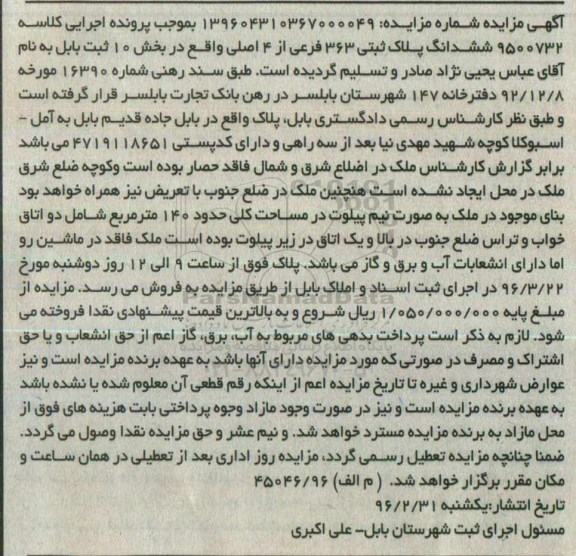 آگهـی مزایده شـماره مزایـده: ۱۳۹۶۰۴۳۱۰۳۶۷۰۰۰۰۴۹ بموجب پرونده اجرایی کلاسـه
۹۵۰۰۷۳۲ ششـدانگ پـلاک ثبتی ۳۶۳ فرعی از ۴ اصلی واقـع در بخش ۱۰ ثبت بابل به نام
آقای عباس یحیی نژاد صادر و تسـلیم گردیده است. طبق سـند رهنی شماره ۱۶۳۹۰ مورخه
۹۲/۱۲/۸ دفترخانه ۱۴۷ شهرستان بابلسـر در رهن بانک تجارت بابلسـر قرار گرفته است
و طبق نظر کارشـناس رسـمی دادگستری بابل، پلاک واقع در بابل جاده قدیـم بابل به آمل -
اسـبوکلا کوچه شـهید مهدی نیا بعد از سـه راهی و دارای کدپسـتی ۴۷۱۹۱۱۸۶۵۱ می باشد
برابر گزارش کارشـناس ملک در اضلاع شرق و شمال فاقد حصار بوده است وکوچه ضلع شرق
ملک در محل ایجاد نشـده اسـت همچنین ملک در ضلع جنوب با تعریض نیز همراه خواهد بود
بنای موجود در ملک به صورت نیم پیلوت در مسـاحت کلی حدود ۱۴۰ مترمربع شـامل دو اتاق
خواب و تراس ضلع جنوب در بالا و یک اتاق در زیر پیلوت بوده اسـت ملک فاقد در ماشین رو
اما دارای انشعابات آب و برق و گاز می باشد. پلاک فوق از ساعت ۹ الی ۱۲ روز دوشنبه مورخ
۹۶/۳/۲۲ در اجرای ثبت اسـناد و املاک بابل از طریق مزایده به فروش می رسـد. مزایده از
مبلـغ پایه ۱/۰۵۰/۰۰۰/۰۰۰ ریال شـروع و به بالاترین قیمت پیشـنهادی نقدا فروخته می
شود. لازم به ذکر است پرداخت بدهی های مربوط به آب، برق، گاز اعم از حق انشعاب و یا حق
اشتراک و مصرف در صورتی که مورد مزایده دارای آنها باشد به عهده برنده مزایده است و نیز
عوارض شهرداری و غیره تا تاریخ مزایده اعم از اینکه رقم قطعی آن معلوم شده یا نشده باشد
به عهده برنده مزایده اسـت و نیز در صورت وجود مازاد وجوه پرداختی بابت هزینه های فوق از
محل مازاد به برنده مزایده مسترد خواهد شد. و نیم عشر و حق مزایده نقدا وصول می گردد.
ضمنا چنانچه مزایده تعطیل رسـمی گردد، مزایده روز اداری بعد از تعطیلی در همان سـاعت و
مکان مقرر برگزار خواهد شد. ( م الف) ۴۵۰۴۶/۹۶
تاریخ انتشار:یکشنبه ۹۶/۲/۳۱
مسئول اجرای ثبت شهرستان بابل- علی اکبری
ParsNamadData